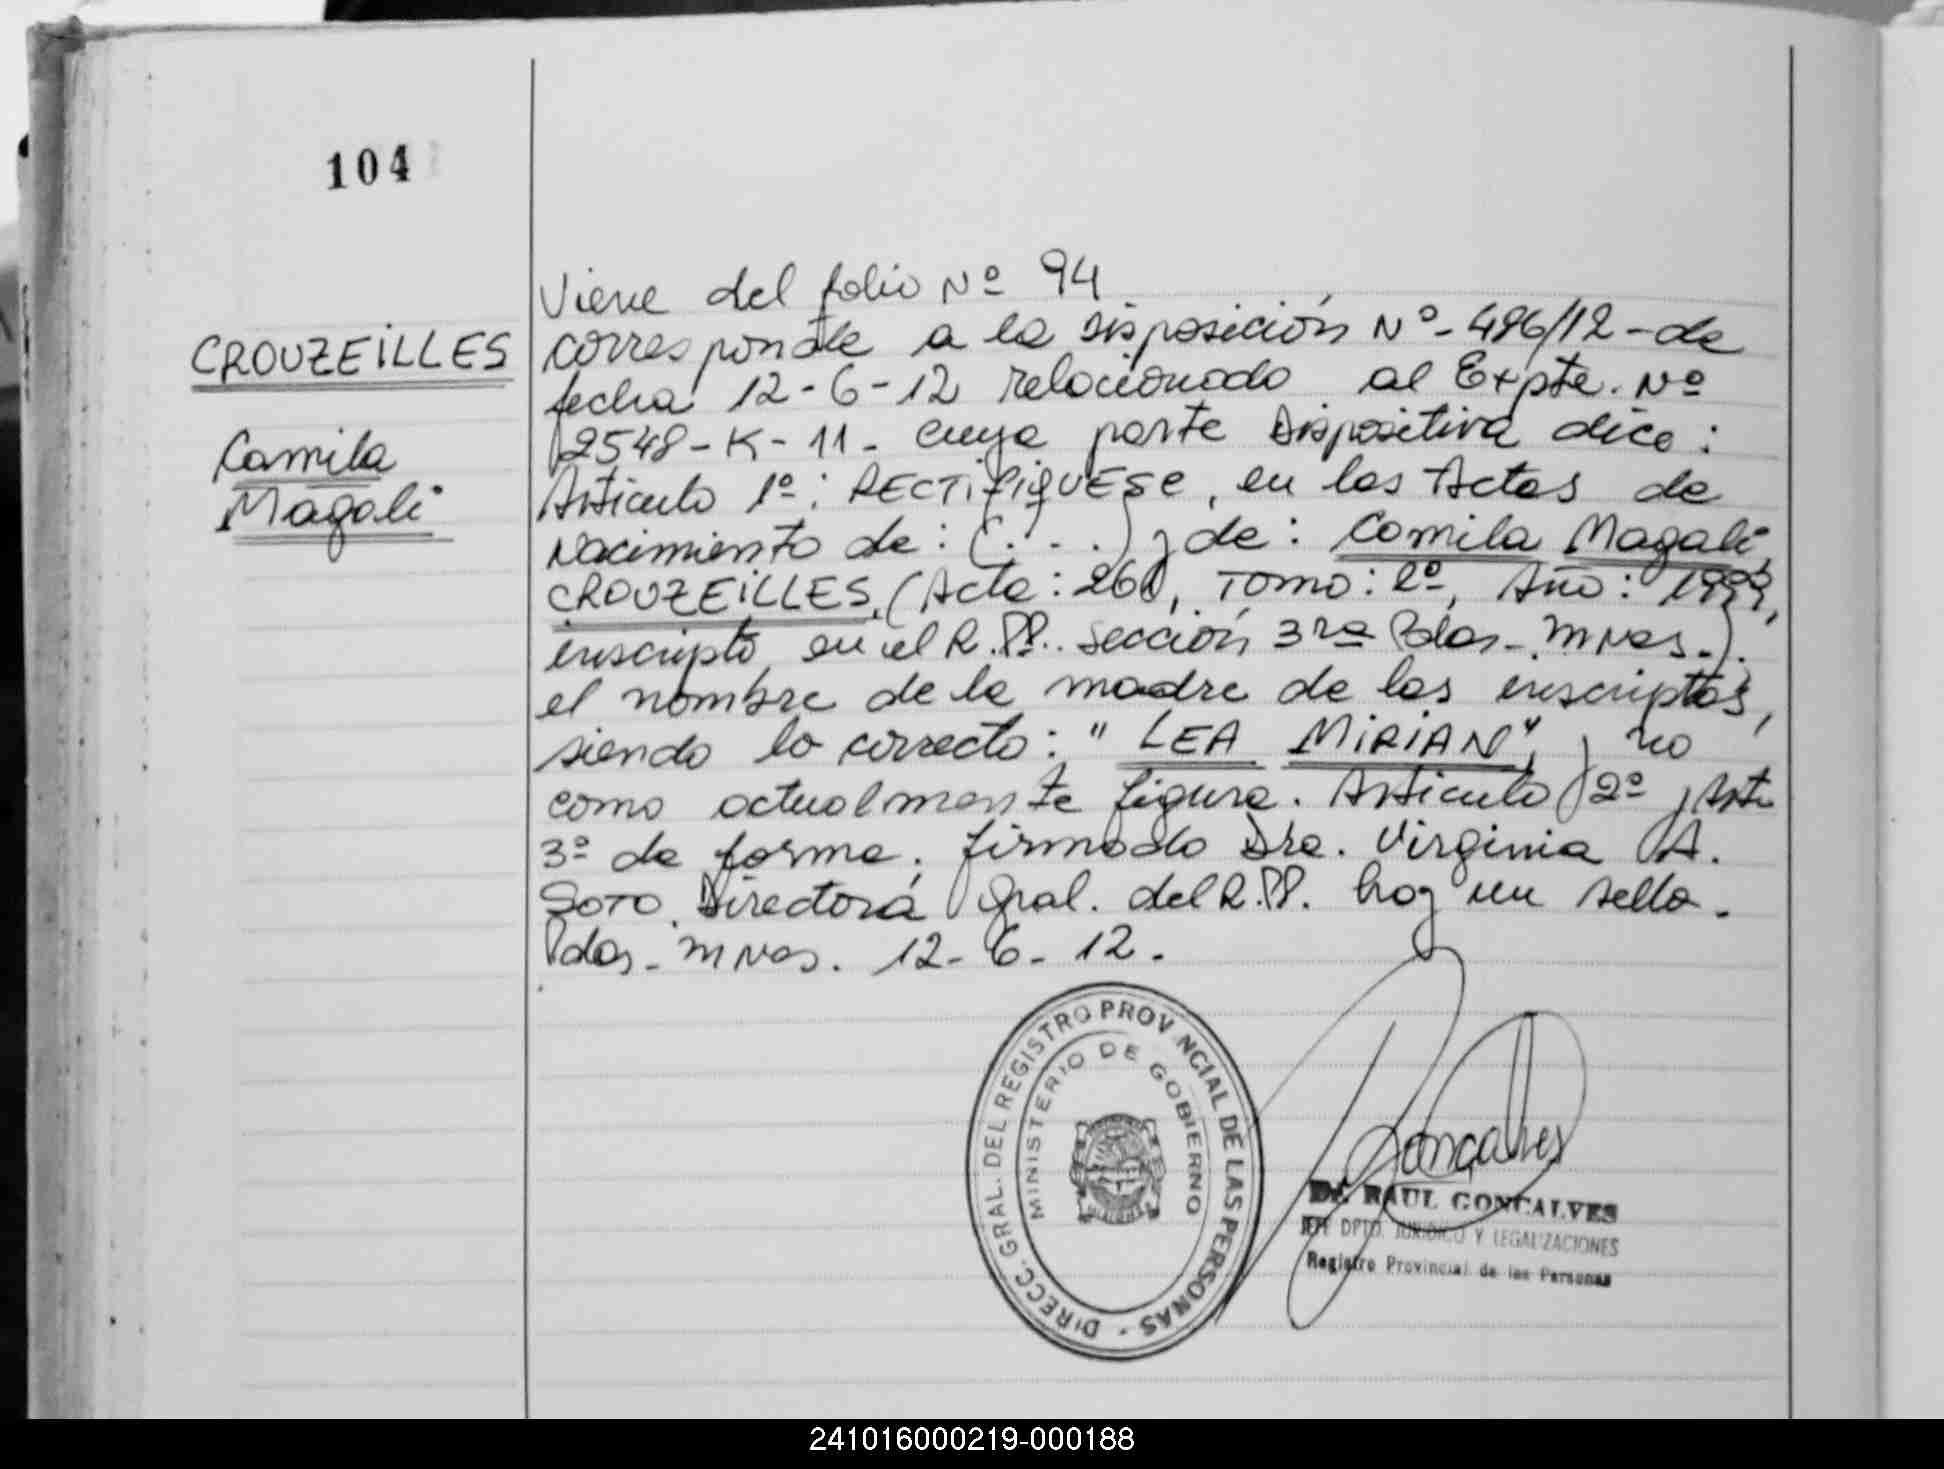 104
CROUZEILLES
Camila
Magali
Viene del folio Nº 94
corresponde a la disposición Nº- 496/12 - de
fecha 12-6-12 relacionado al Expte. Nº
2548-K-11- cuya parte dispositiva dice:
Artículo 1º: RECTIFIQUESE, en las Actas de
Nacimiento de: (...) y de: Camila Magali
CROUZEILLES, (Acta: 260, Tomo: 2º, Año: 1999,
inscripto en el R.PP. Sección 3ra Pdas-Mnes.).
el nombre de la madre de los inscriptos,
siendo lo correcto: "LEA MIRIAN", y no
como actualmente figura. Artículo 2º y Art.
3º de forma. firmado Dra. Virginia A.
SOTO. Directora Gral. del R.PP. hay un sello.
Pdas-Mnes. 12-6-12.
DIRECC. GRAL. DEL REGISTRO PROVINCIAL DE LAS PERSONAS -
MINISTERIO DE GOBIERNO
Goncalves
Dr. RAUL GONCALVES
JEFE DPTO. JURIDICO Y LEGALIZACIONES
Registro Provincial de las Personas
241016000219-000188